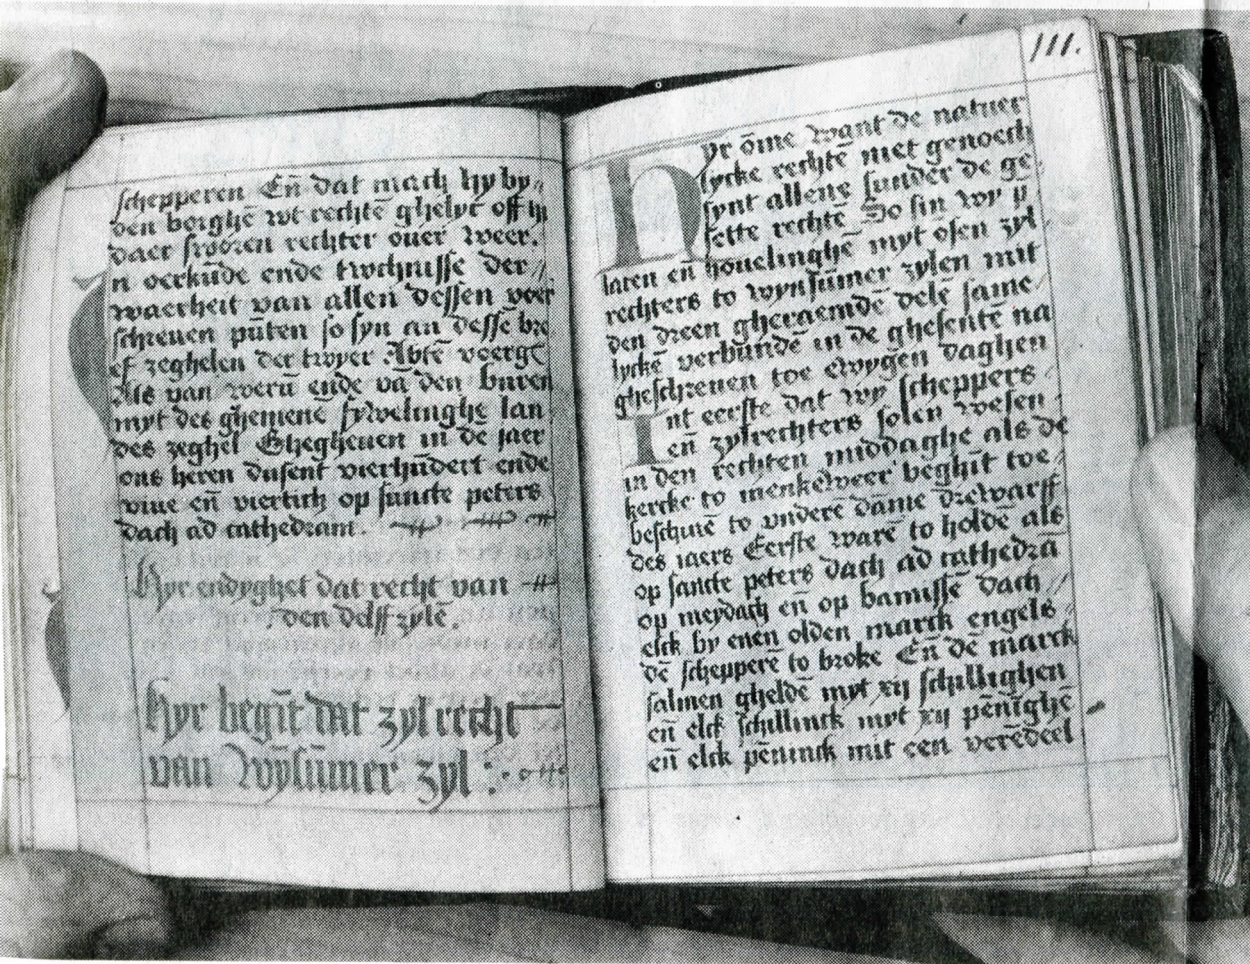 schepperen Eñ dat mach hy by„
den borghē wt rechtē ghelyc off hy
daer sworen rechter ouer weer.
n oerkūde ende twchnisse der //
waerheit van allen dessen voer
schreuen pūten so syn an desse bre
ef zeghelen der twyer Abtē voergͭ
Als van werū ende vā den buren
myt des ghemene fywelinghe lan
des zeghel Ghegheuen in de iaer
ons heren dusent vierhūdert ende
viue eñ viertich op sancte peters
dach ad cathedram.
Hyr endyghet dat recht van
den delff zylē.
Hyr begīt dat zyl recht
van Wysūmer zyl :
111.
Hyr ōme want de natuer
lycke rechtē niet genoech
synt allene sunder de ge
sette rechtē So sin wy p
laten eñ houelinghē myt osen zyl
rechters to wynsūmer zylen mit
den dreen gheraemde delē same
lyckē verbūdē in de ghesentē na
gheschreuen toe ewygen daghen
Int eerste dat wy scheppers
eñ zylrechters solen wesen
in den rechten middaghe als de
kercke to menkeweer beghīt toe
beschuiē to vndere dāme drewarff
des iaers Eerste warē to holdē als
op sancte peters dach ad cathedrā
op meydach eñ op bamissē dach //
elck by enen olden marck engels
dē schepperē to broke Eñ dē marck
salmen gheldē myt xij schillighen
eñ elck schillinck myt xij pēnīghē
eñ elck pēninck mit een verēdeel